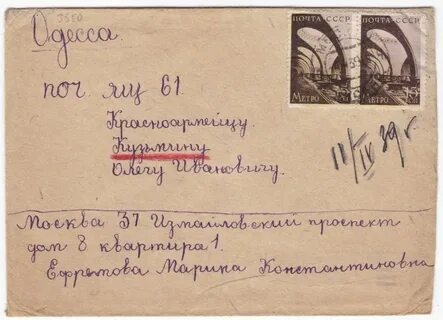 3520
Одесса.
ПОЧТА СССР
ПОЧТА СССР
МЕТРО
МЕТРО
поч ящ 61.
Красноармейцу
Кузьмину
Олегу Ивановичу.
11/IV 39 г
Москва 37 Измайловский проспект
дом 8 квартира 1.
Ефремова Марина Константиновна